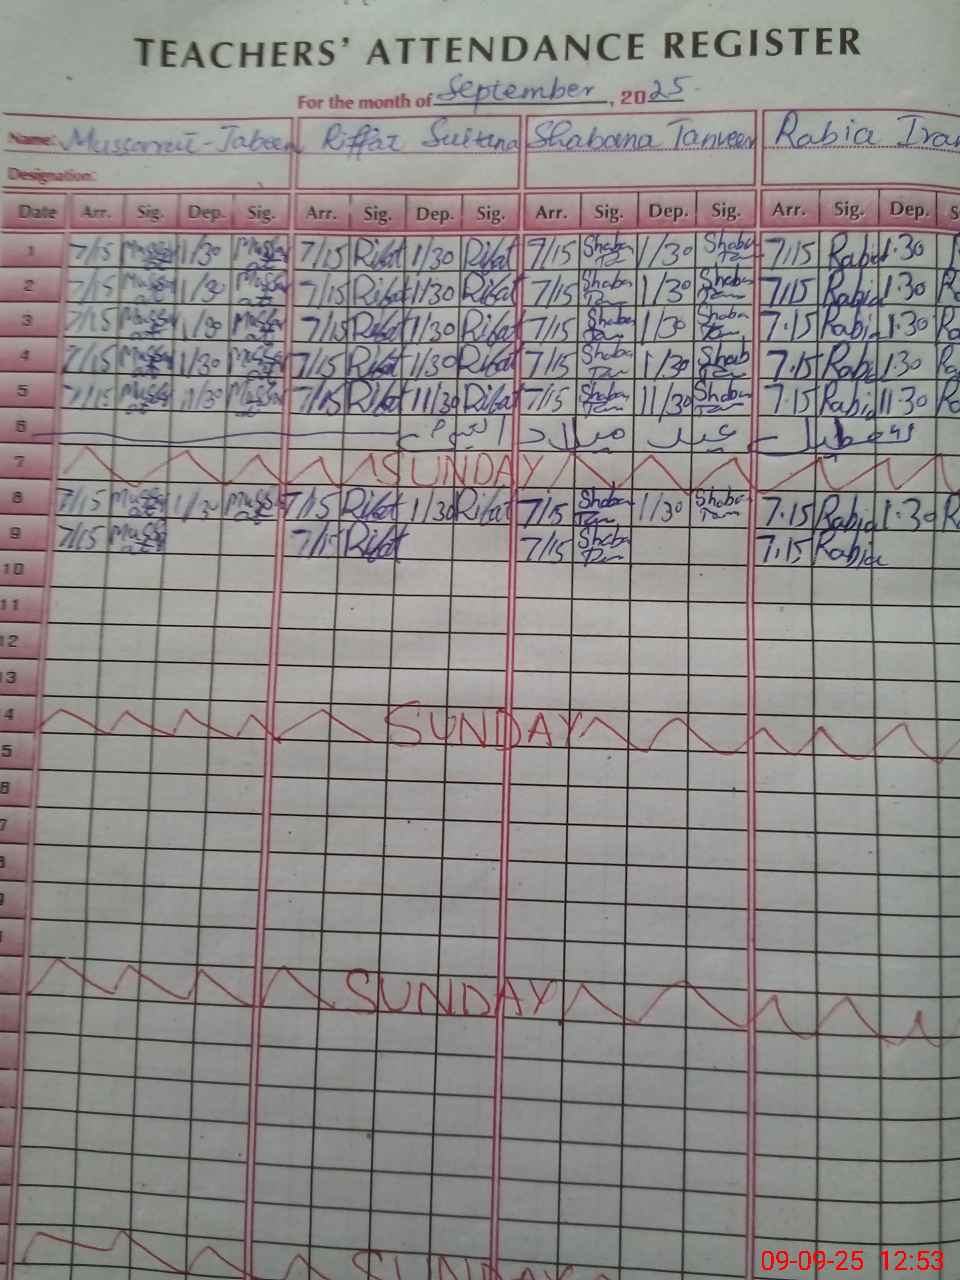 TEACHERS' ATTENDANCE REGISTER
For the month of September, 2025
Name: Mussarrat-Jabeen Riffat Sultana Shabana Tanveer Rabia Iran
Designation:
Date Arr. Sig. Dep. Sig. Arr. Sig. Dep. Sig. Arr. Sig. Dep. Sig. Arr. Sig. Dep. S
1 7/15 Mussa 1/30 Mussa 7/15 Rifat 1/30 Rifat 7/15 Shaban Tan 1/30 Shaba Tan 7/15 Rabia 1.30 R
2 7/15 Mussa 1/30 Mussa 7/15 Rifat 1/30 Rifat 7/15 Shaban Tan 1/30 Shaba Tan 7/15 Rabia 1.30 Ra
3 7/15 Mussa 1/30 Mussa 7/15 Rifat 1/30 Rifat 7/15 Shaban Tan 1/30 Shaba Tan 7.15 Rabi 1.30 Ra
4 7/15 Mussa 1/30 Mussa 7/15 Rifat 1/30 Rifat 7/15 Shaba Tan 1/30 Shab Tan 7.15 Rabi 1.30 Ra
5 7/15 Mussa 1/30 Mussa 7/15 Rifat 11/30 Rifat 7/15 Shaba Tan 11/30 Shaba Tan 7.15 Rabia 11.30 Ra
6 تعطیل عید میلاد النبیؐ
7 SUNDAY
8 7/15 Mussa 1/30 Mussa 7/15 Rifat 1/30 Rifat 7/15 Shaba Tan 1/30 Shaba Tan 7.15 Rabia 1.30 Ra
9 7/15 Mussa 7/15 Rifat 7/15 Shaba Tan 7.15 Rabia
10
11
12
13
4 SUNDAY
5
6
7
SUNDAY
SUNDAY
09-09-25 12:53